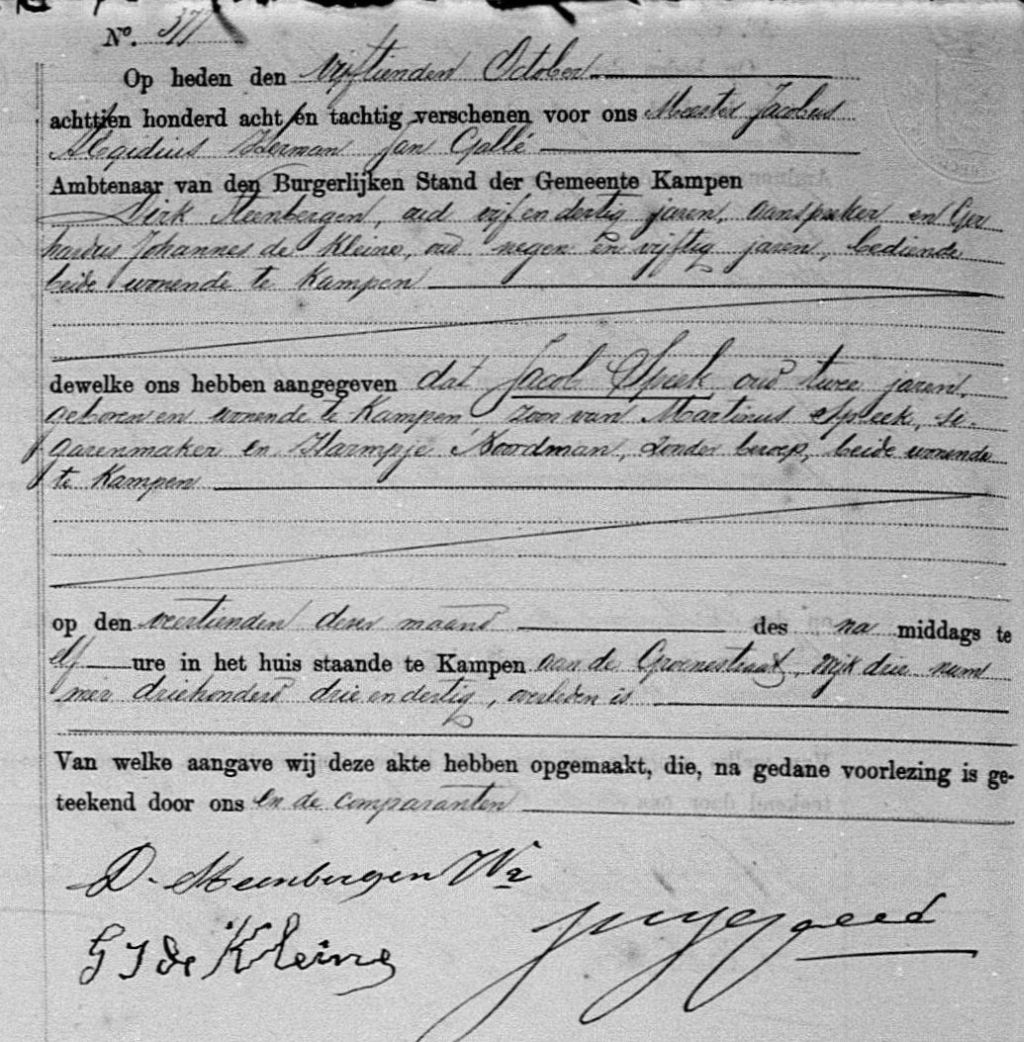 No. 371
Op heden den vijftienden October
achttien honderd acht en tachtig verschenen voor ons Meester Jacobus
Aegidius Herman Jan Gallé
Ambtenaar van den Burgerlijken Stand der Gemeente Kampen
Dirk Steenbergen, oud vijf en dertig jaren, aanspreker en Ger
hardus Johannes de Kleine, oud negen en vijftig jaren, bediende
beide wonende te Kampen
dewelke ons hebben aangegeven dat Jacob Spiek oud twee jaren,
geboren en wonende te Kampen zoon van Martinus Spiek, si-
garenmaker en Harmpje Noordman, zonder beroep, beide wonende
te Kampen
op den veertienden dezer maand des na middags te
elf ure in het huis staande te Kampen aan de Groenestraat, wijk drie num
mer driehonderd drie en dertig, overleden is
Van welke aangave wij deze akte hebben opgemaakt, die, na gedane voorlezing is ge-
teekend door ons en de comparanten
D. Steenbergen Wz
G J de Kleine